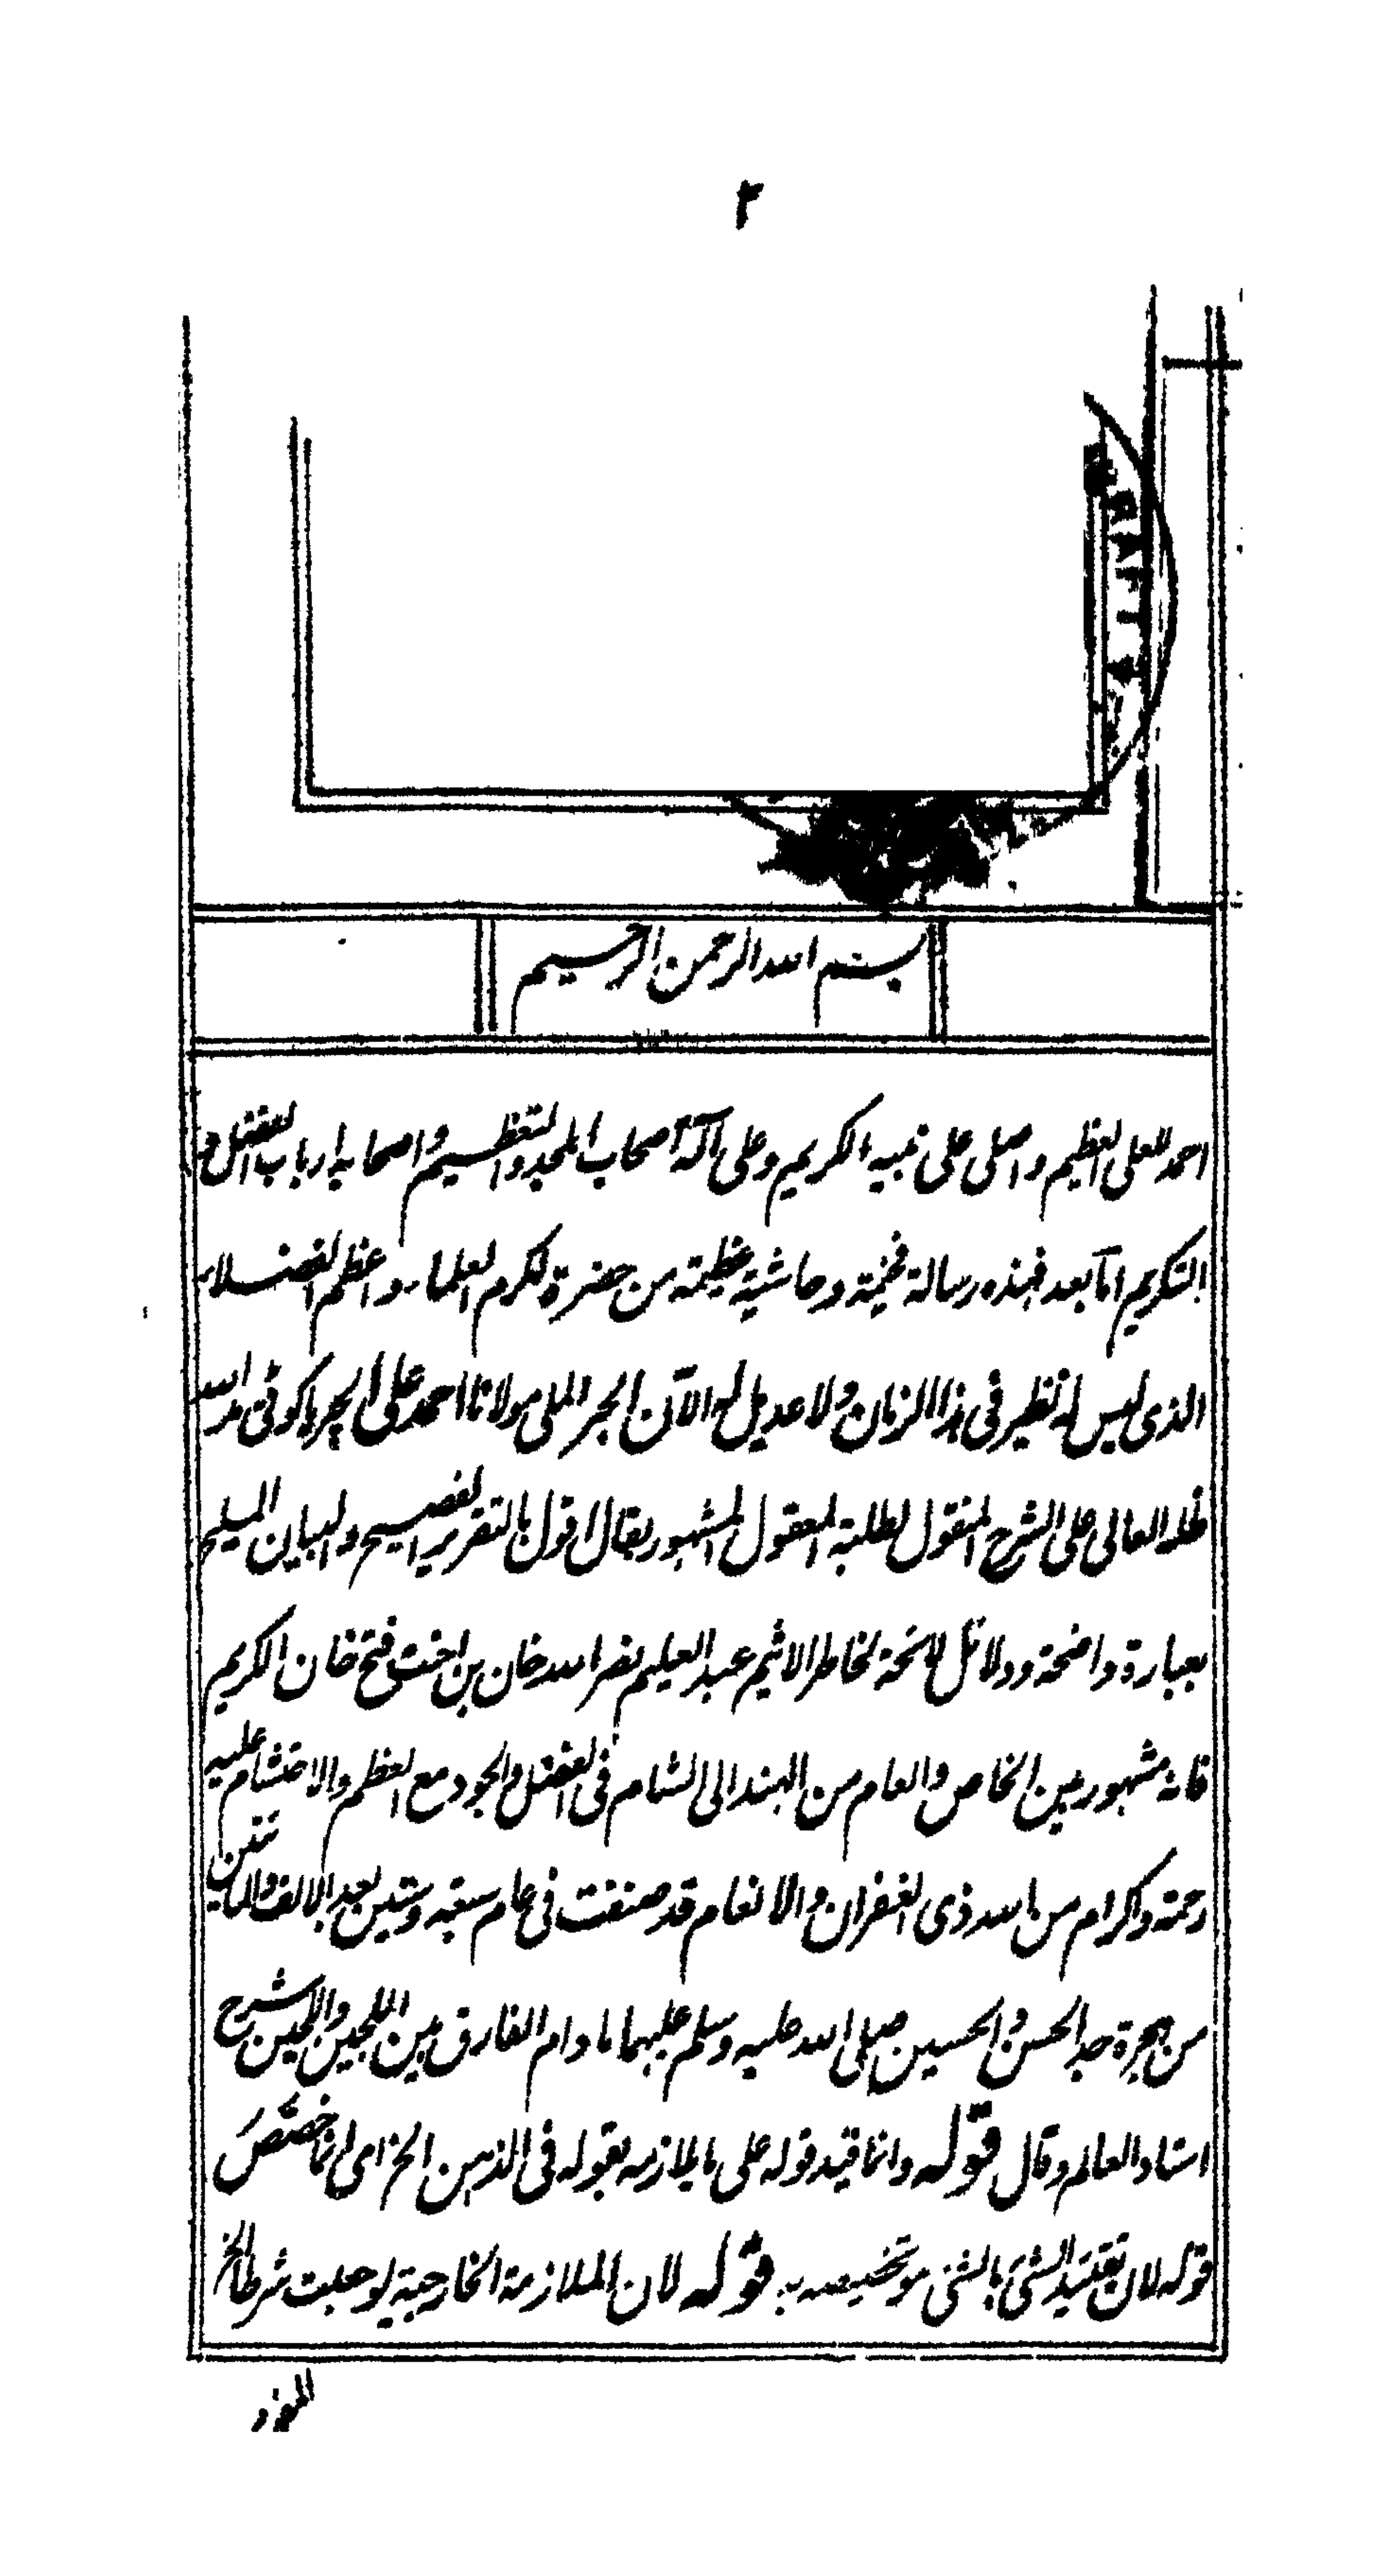 ٢
بسم الله الرحمن الرحيم
احمد للعلى العظيم واصلى على نبيه الكريم وعلى آله اصحاب المجد والتعظيم واصحابه ارباب الفضل و
التكريم اما بعد فهذه رسالة فخيمة وحاشية عظيمة من حضرة اكرم العلماء واعظم الفضلاء
الذى ليس له نظير فى هذا الزمان ولا عديل له الآن الحبر الملى مولانا احمد على الچرياكوٹى مد الله
ظله العالى على الشرح المنقول لطلبة المعقول المشهور بقال اقول بالتقرير الفصيح والبيان المليح
بعبارة واضحة ودلائل لائحة لخاطر الاثيم عبد العليم نصر الله خان بن اخت فتح خان الكريم
فانه مشهور بين الخاص والعام من الهند الى الشام فى الفضل والجود مع العظم والاحتشام عليه
رحمة واكرام من الله ذى الغفران والانعام قد صنفت فى عام سبعة وستين بعد الالف والمائتين
من هجرة جد الحسن والحسين صلى الله عليه وسلم عليهما ما دام الفارق بين اللجين واللجين شرح
استاد العالم وقال قوله وانما قيد قوله على ما يلازمه بقوله فى الذهن الخ اى انما خصص
قوله لان تقييد الشئ بالشئ هو تخصيصه به قوله لان الملازمة الخارجية لو جعلت شرطا الخ